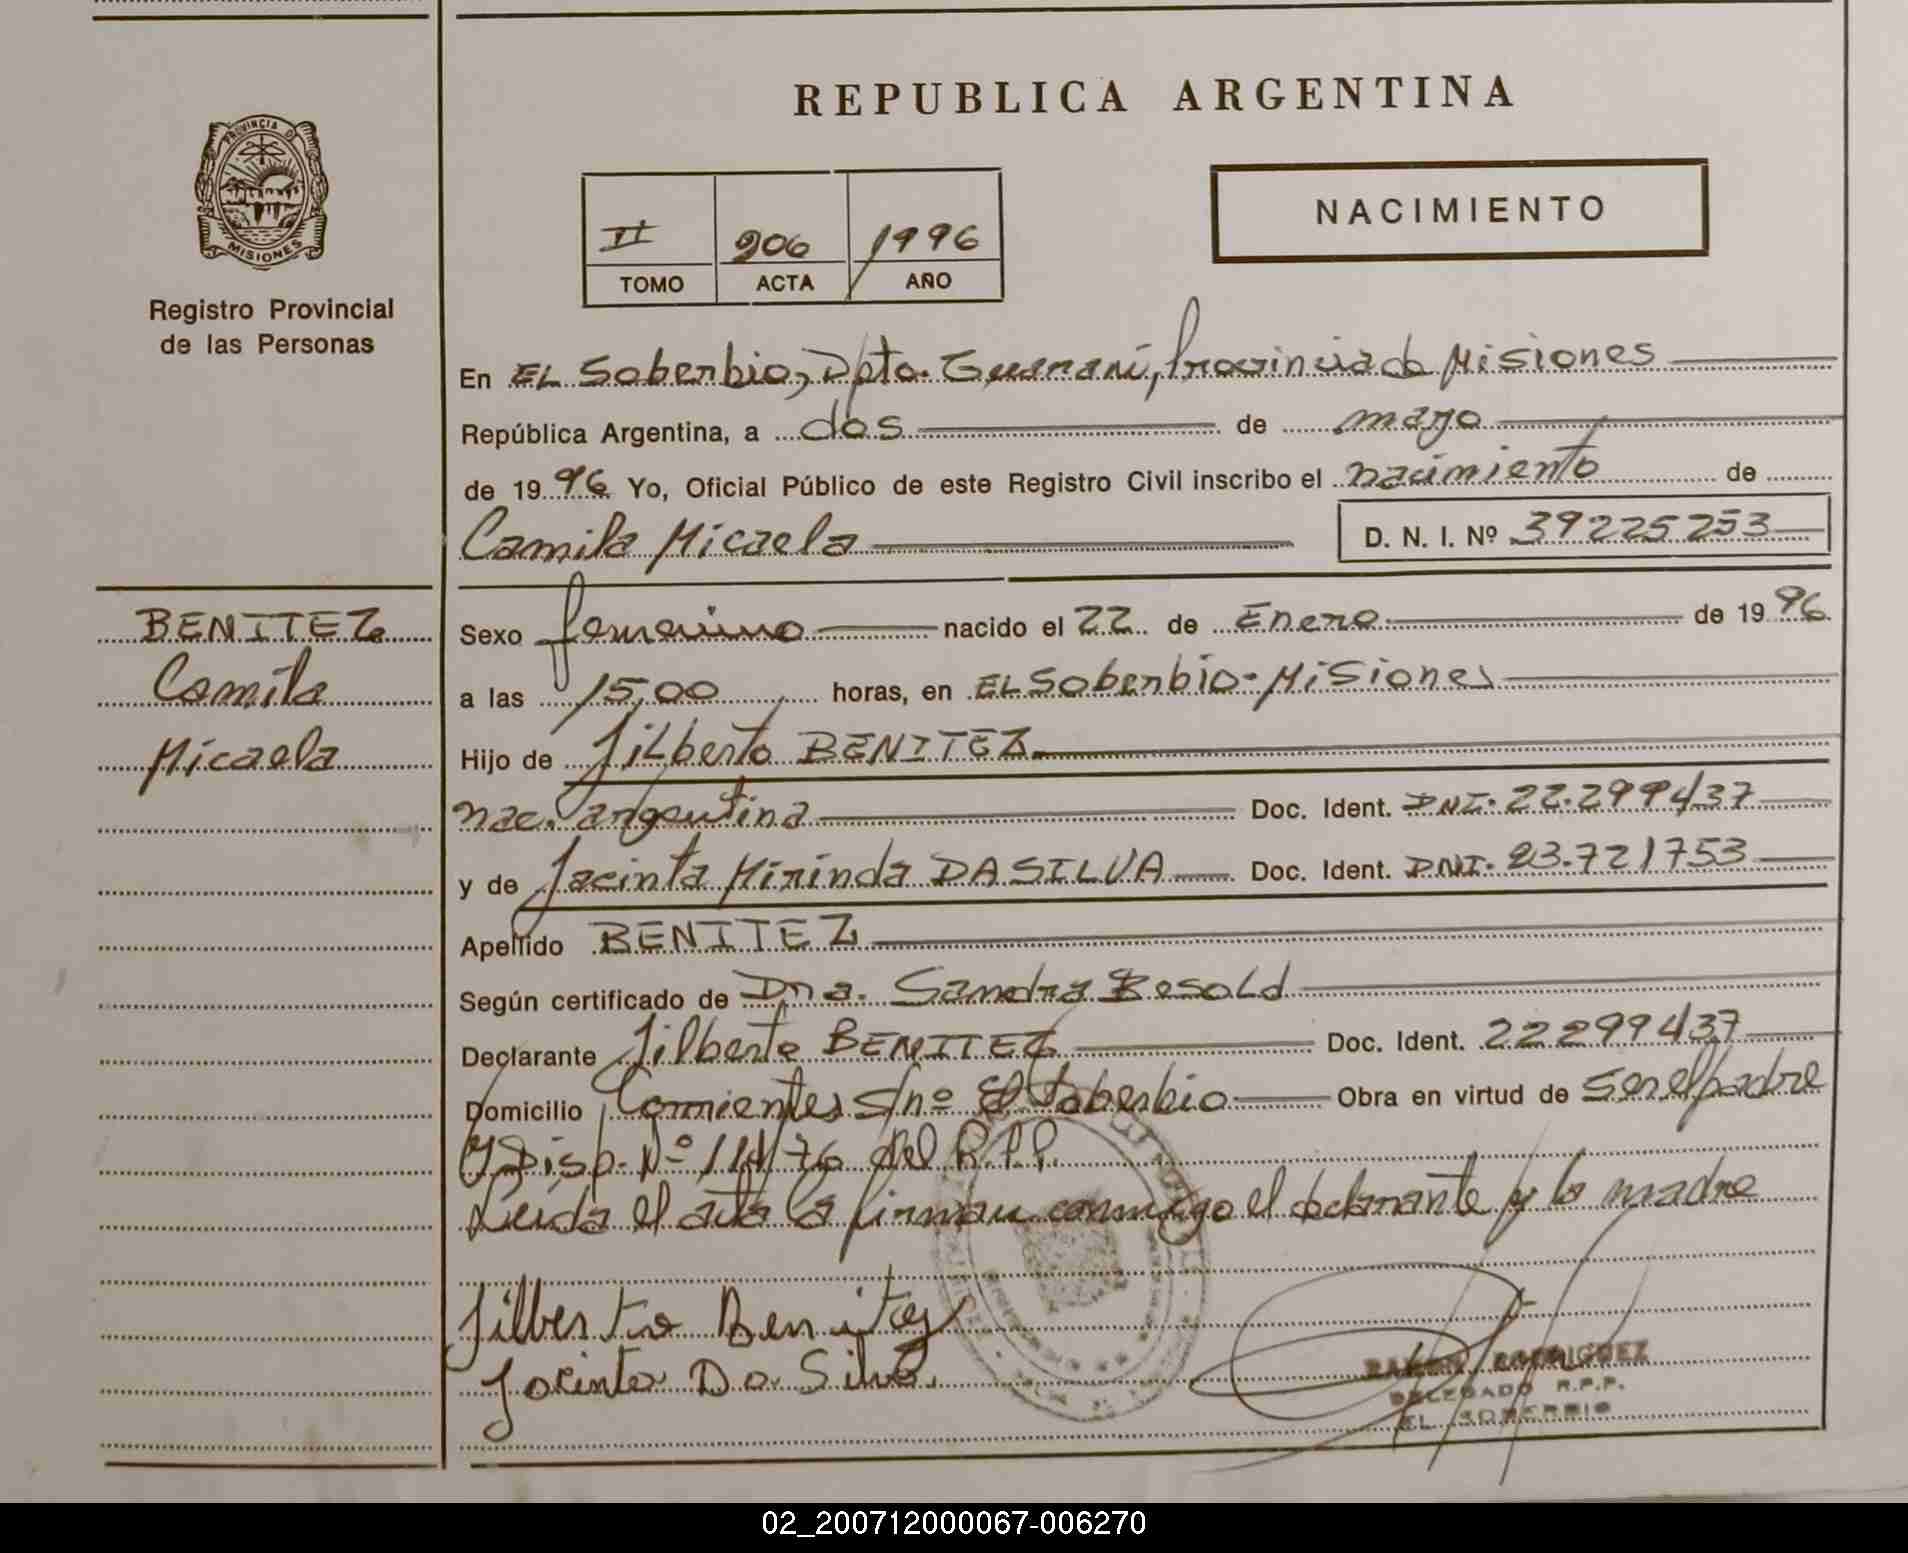 REPUBLICA ARGENTINA
PROVINCIA DE
MISIONES
Registro Provincial
de las Personas
NACIMIENTO
II 206 1996
TOMO ACTA AÑO
En EL Soberbio, Dpto. Guarani, Provincia de Misiones
República Argentina, a dos de mayo
de 1996 Yo, Oficial Público de este Registro Civil inscribo el nacimiento de
Camila Micaela D. N. I. Nº 39225253
BENITEZ
Camila
Micaela
Sexo femenino nacido el 22 de Enero de 1996
a las 15,00 horas, en EL Soberbio - Misiones
Hijo de Jilberto BENITEZ
nac. argentina Doc. Ident. DNI. 22.299437
y de Jacinta Mirinda DA SILVA Doc. Ident. DNI. 23.721753
Apellido BENITEZ
Según certificado de Dra. Sandra Besold
Declarante Jilberto BENITEZ Doc. Ident. 22299437
Domicilio Corrientes S/nº El Soberbio Obra en virtud de Ser el padre
y Disp. Nº 114/76 del R.P.P.
Leida el acta la firman conmigo el declarante y la madre
Jilberto Benitez
Jacinta Da Silva
RAMON RODRIGUEZ
DELEGADO R.P.P.
EL SOBERBIO
02_200712000067-006270